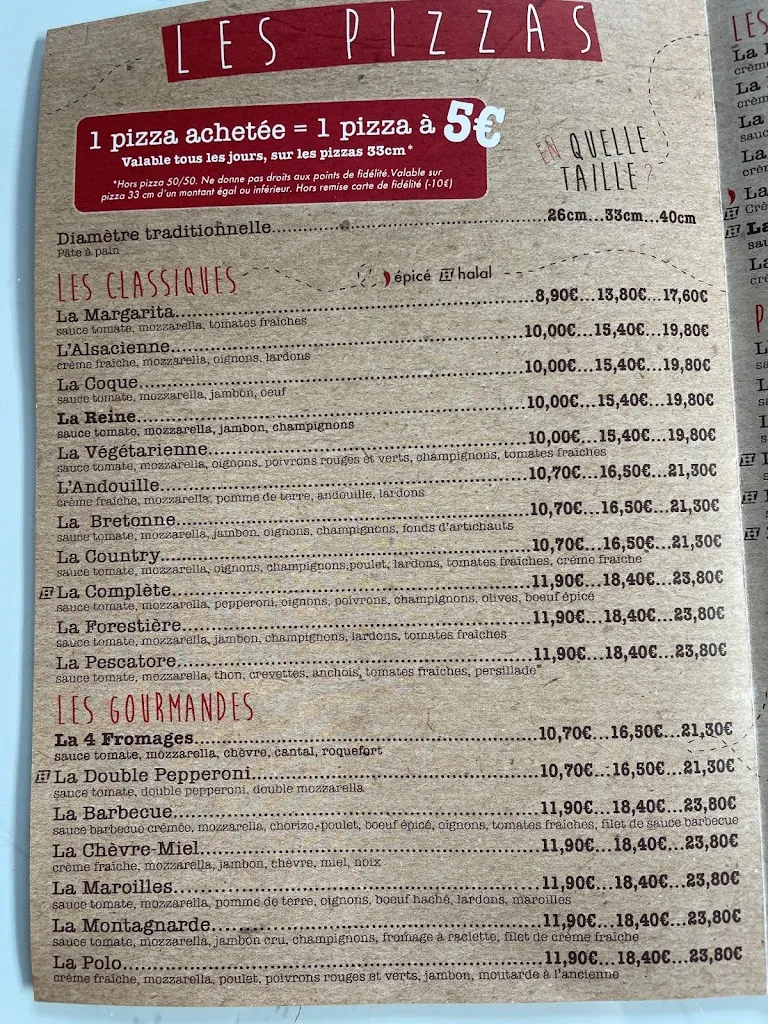 LES PIZZAS
1 pizza achetée = 1 pizza à 5€
Valable tous les jours, sur les pizzas 33cm*
*Hors pizza 50/50. Ne donne pas droits aux points de fidélité.Valable sur
pizza 33 cm d'un montant égal ou inférieur. Hors remise carte de fidélité (-10€)
EN QUELLE
TAILLE ?
Diamètre traditionnelle...26cm...33cm...40cm
Pâte à pain
LES CLASSIQUES
épicé halal
La Margarita...8,90€...13,80€...17,60€
sauce tomate, mozzarella, tomates fraîches
L'Alsacienne...10,00€...15,40€...19,80€
crème fraîche, mozzarella, oignons, lardons
La Coque...10,00€...15,40€...19,80€
sauce tomate, mozzarella, jambon, oeuf
La Reine...10,00€...15,40€...19,80€
sauce tomate, mozzarella, jambon, champignons
La Végétarienne...10,00€...15,40€...19,80€
sauce tomate, mozzarella, oignons, poivrons rouges et verts, champignons, tomates fraîches
L'Andouille...10,70€...16,50€...21,30€
crème fraîche, mozzarella, pomme de terre, andouille, lardons
La Bretonne...10,70€...16,50€...21,30€
sauce tomate, mozzarella, jambon, oignons, champignons, fonds d'artichauts
La Country...10,70€...16,50€...21,30€
sauce tomate, mozzarella, oignons, champignons,poulet, lardons, tomates fraîches, crème fraîche
La Complète...11,90€...18,40€...23,80€
sauce tomate, mozzarella, pepperoni, oignons, poivrons, champignons, olives, boeuf épicé
La Forestière...11,90€...18,40€...23,80€
sauce tomate, mozzarella, jambon, champignons, lardons, tomates fraîches
La Pescatore...11,90€...18,40€...23,80€
sauce tomate, mozzarella, thon, crevettes, anchois, tomates fraîches, persillade
LES GOURMANDES
La 4 Fromages...10,70€...16,50€...21,30€
sauce tomate, mozzarella, chèvre, cantal, roquefort
La Double Pepperoni...10,70€...16,50€...21,30€
sauce tomate, double pepperoni, double mozzarella
La Barbecue...11,90€...18,40€...23,80€
sauce barbecue crémée, mozzarella, chorizo, poulet, boeuf épicé, oignons, tomates fraîches, filet de sauce barbecue
La Chèvre-Miel...11,90€...18,40€...23,80€
crème fraîche, mozzarella, jambon, chèvre, miel, noix
La Maroilles...11,90€...18,40€...23,80€
sauce tomate, mozzarella, pomme de terre, oignons, boeuf haché, lardons, maroilles
La Montagnarde...11,90€...18,40€...23,80€
sauce tomate, mozzarella, jambon cru, champignons, fromage à raclette, filet de crème fraîche
La Polo...11,90€...18,40€...23,80€
crème fraîche, mozzarella, poulet, poivrons rouges et verts, jambon, moutarde à l'ancienne